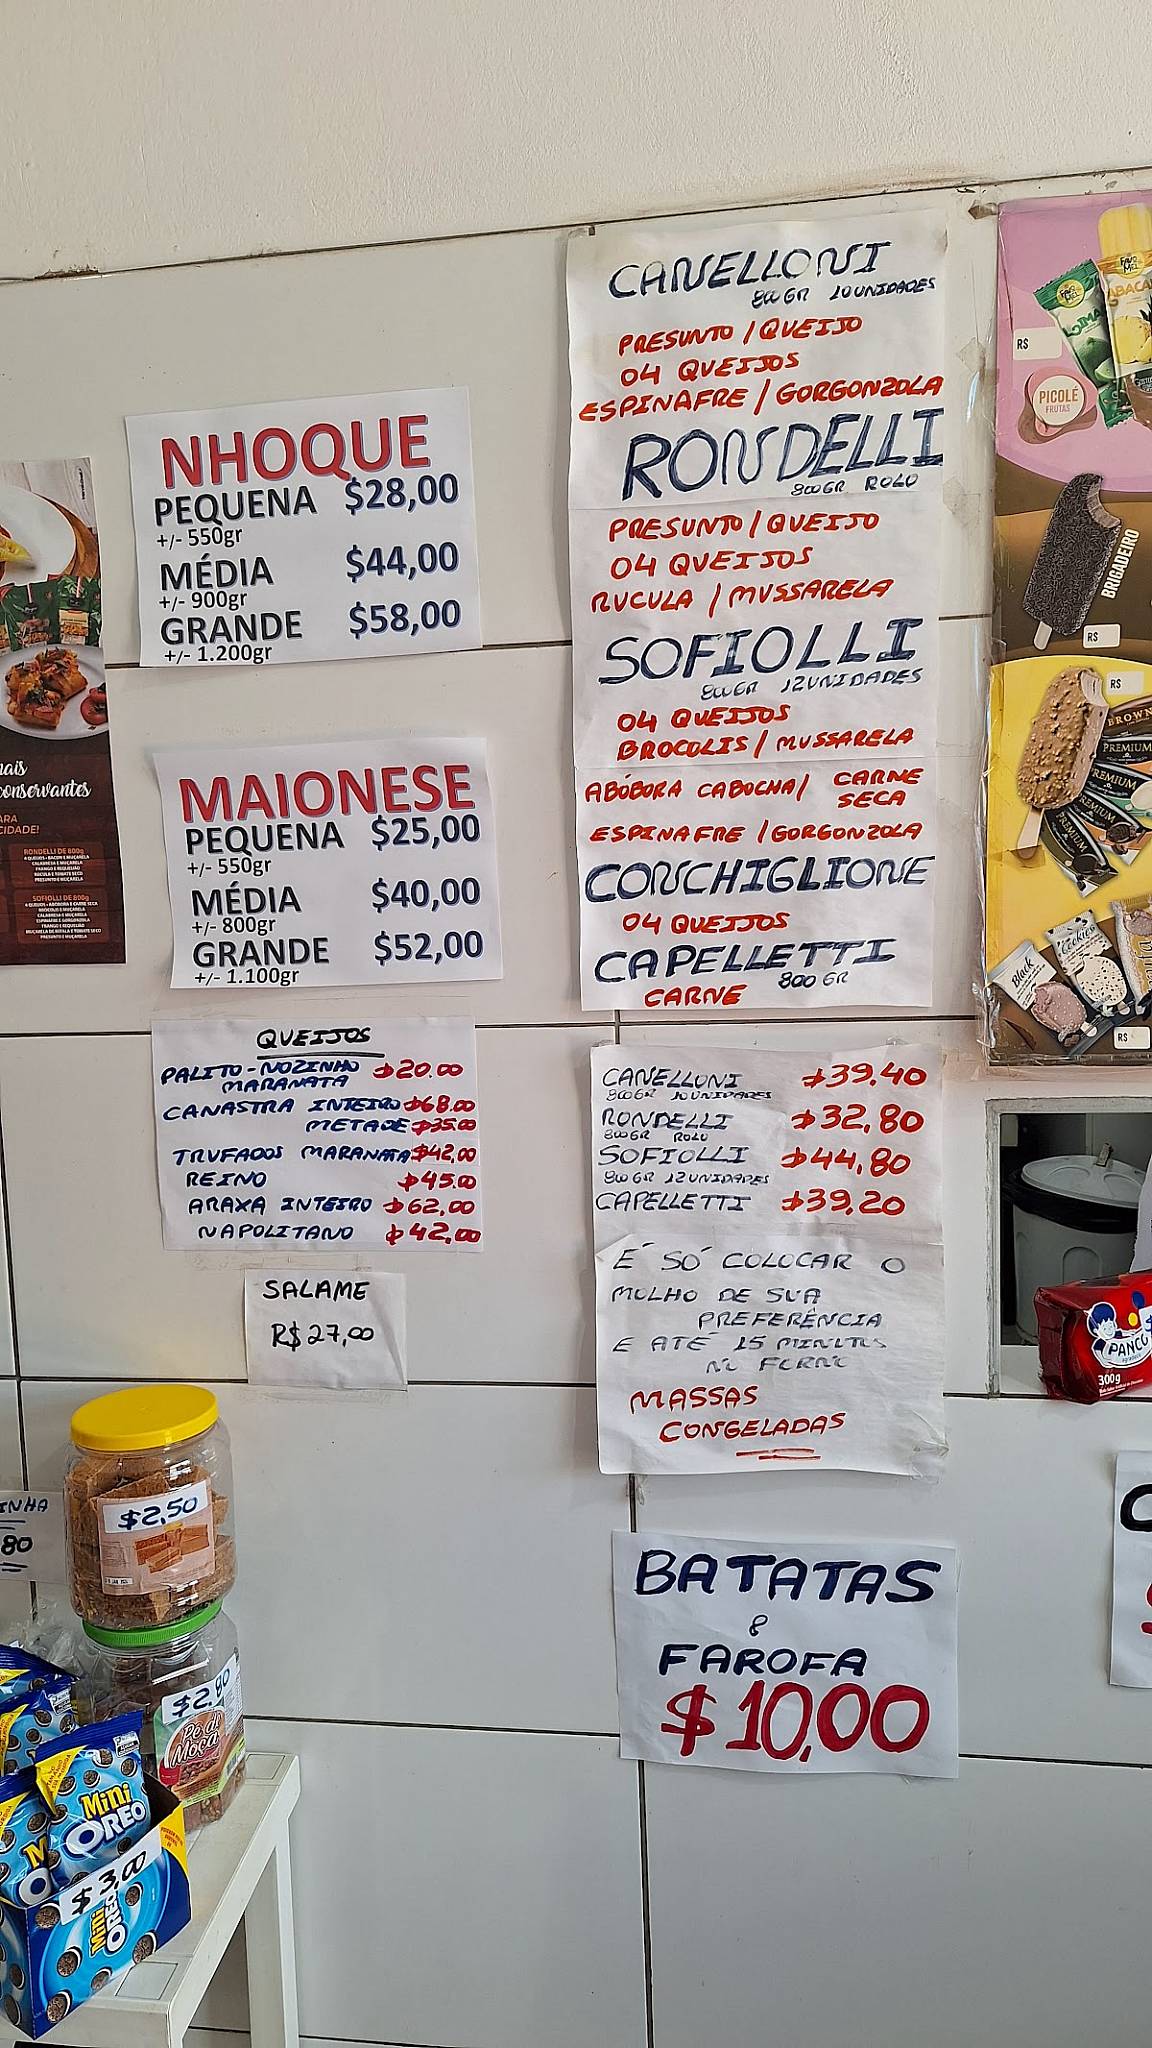 NHOQUE
PEQUENA $28,00
+/- 550gr
MÉDIA $44,00
+/- 900gr
GRANDE $58,00
+/- 1.200gr
MAIONESE
PEQUENA $25,00
+/- 550gr
MÉDIA $40,00
+/- 800gr
GRANDE $52,00
+/- 1.100gr
QUEIJOS
PALITO-NOZINHO $20.00
MARANATA
CANASTRA INTEIRO $68.00
METADE $35.00
TRUFADOS MARANATA $42,00
REINO $45.00
ARAXA INTEIRO $62,00
NAPOLITANO $42,00
SALAME
R$27,00
CANELLONI
800GR 10UNIDADES
PRESUNTO/QUEIJO
04 QUEIJOS
ESPINAFRE/GORGONZOLA
RONDELLI
800GR ROLO
PRESUNTO/QUEIJO
04 QUEIJOS
RUCULA/MUSSARELA
SOFIOLLI
800GR 12UNIDADES
04 QUEIJOS
BROCOLIS/MUSSARELA
ABÓBORA CABOCHA/ CARNE
SECA
ESPINAFRE/GORGONZOLA
CONCHIGLIONE
04 QUEIJOS
CAPELLETTI
800GR
CARNE
CANELLONI $39.40
800GR 10UNIDADES
RONDELLI $32,80
800GR ROLO
SOFIOLLI $44,80
800GR 12UNIDADES
CAPELLETTI $39.20
É SÓ COLOCAR O
MOLHO DE SUA
PREFERÊNCIA
E ATÉ 15 MINUTOS
NO FORNO
MASSAS
CONGELADAS
BATATAS
&
FAROFA
$10,00
RONDELLI DE 800g
SOFIOLLI DE 800g
CIDADE!
INHA
80
$2,50
$2,80
Pé de
Moça
Mini
OREO
$3,00
Mini
OREO
R$
PICOLÉ
FRUTAS
BRIGADEIRO
R$
R$
PREMIUM
PREMIUM
PREMIUM
PREMIUM
Black
Cookies
R$
PANCO
300g